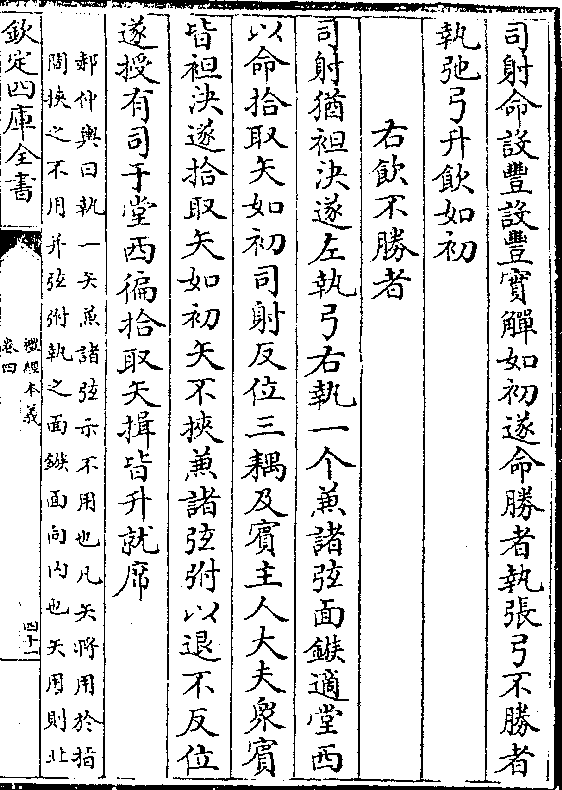 司射命設豐設豐實觶如初遂命勝者執張弓不勝者
執弛弓升飲如初
右飲不勝者
司射猶袒決遂左執弓右執一个兼諸弦面鏃適堂西
以命拾取矢如初司射反位三耦及賓主人大夫衆賓
皆袒決遂拾取矢如初矢不挾兼諸弦弣以退不反位
遂授有司于堂西徧拾取矢揖皆升就席
郝仲輿曰執一矢兼諸弦示不用也凡矢將用於指
間挾之不用并弦弣執之面鏃面向内也矢用則北
欽定四庫全書
禮經本義
卷四
四十二